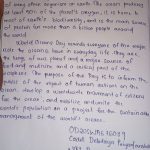 and every other organism on earth. The ocean produces
at least 50% of the planet's oxygen, it is home to
most of earth's biodiversity, and is the main source
of protein for more than a billion people around
the world.
World Oceans Day reminds everyone of the major
role the oceans have in everyday life. They are
the lungs of our planet and a major source of
food and medicine and a critical part of the
biosphere. The purpose of the Day is to inform the
public of the impact of human actions on the
ocean, develop a worldwide movement of citizens
for the ocean, and mobilize and unite the
world's population on a project for the sustainable
management of the world's oceans.